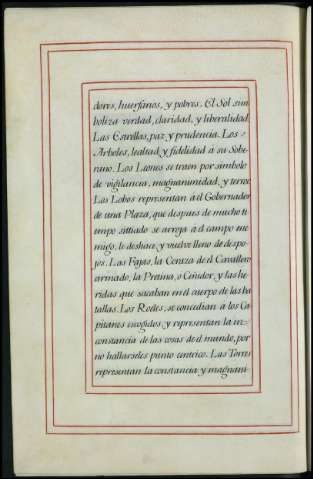 dores, huerfanos, y pobres. El Sol sim
boliza verdad, claridad, y liberalidad
Las Estrellas, paz y prudencia. Los
Arboles, lealtad y fidelidad á su Sobe
rano. Los Leones se traen por simbolo
de vigilancia, magnanimidad, y terror
Los Lobos representan á el Gobernador
de una Plaza, que despues de mucho ti
empo sitiado se arroja á el campo ene
migo, le deshace, y vuelve lleno de despo-
jos. Las Fajas, la Coraza de el Cavallero
armado, la Pretina, o Ceñidor, y las he
ridas que sacaban en el cuerpo de las ba
tallas. Los Roeles, se concedian à los Ca
pitanes escogidos y representan la in=
constancia de las cosas de el mundo, por
no hallarseles punto centrico. Las Torres
representan la constancia y magnani-